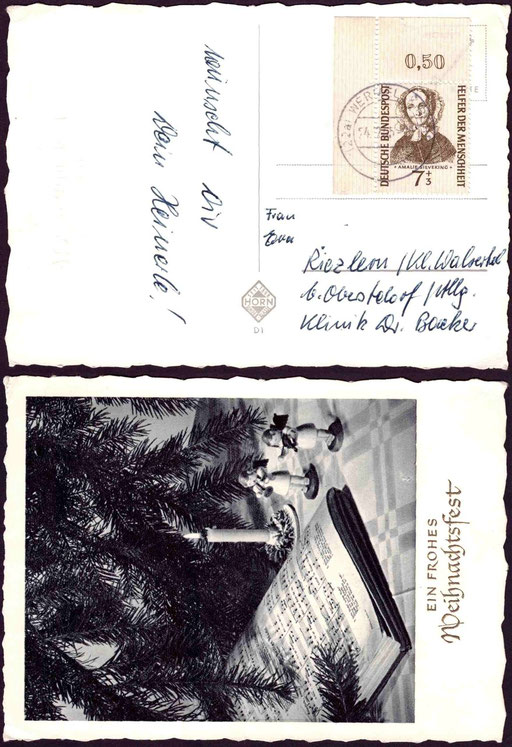 wünscht Dir
Dein Heinerle!
0,50
DEUTSCHE BUNDESPOST
HELFER DER MENSCHHEIT
AMALIE SIEVEKING
7+3
Frau
Riezlern / Kl. Walsertal
b. Oberstdorf / Allg.
Klinik Dr. Backer
HORN
D1
EIN FROHES
Weihnachtsfest